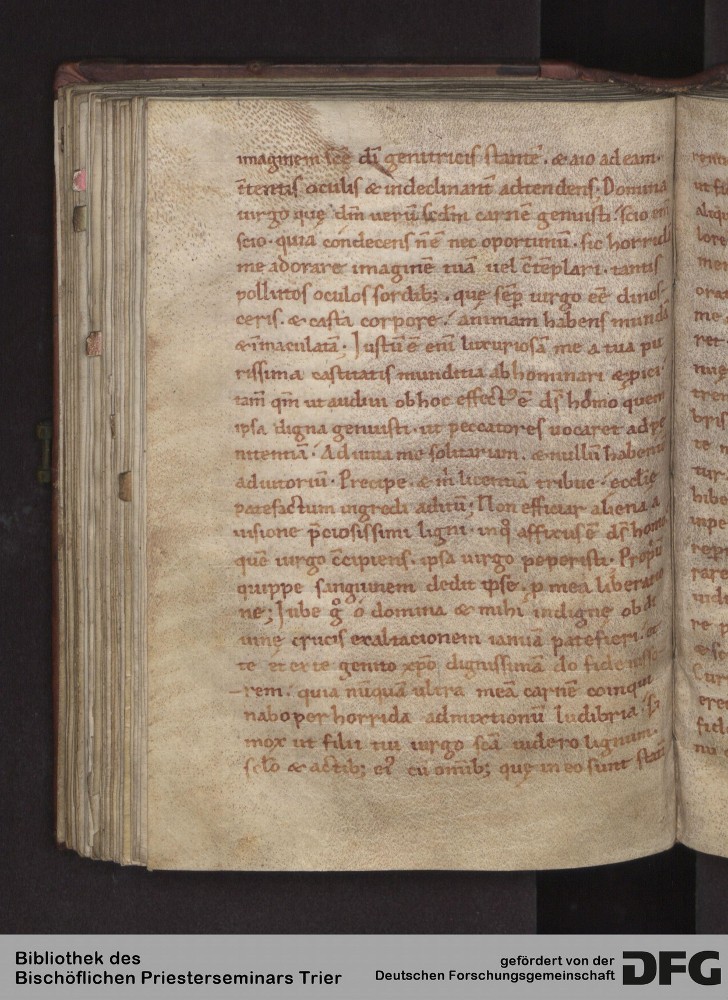 imaginem scē dī genitricis stantē. & aio ad eam.
ītentis oculis & indeclinant adtendens. Domina
uirgo quę dm̄ uerū scdm̄ carnē genuisti. scio enī
scio. quia condecens nē nec oportunū. sic horrida
me adorare imaginē tuā uel cͫtēplari. tantis
pollutos oculos sordib;. que sēp uirgo eē dinos
ceris. & casta corpore. animam habens mundā
& īmaculatā. Iustū ē enī luxuriosā me a tua pu
rissima castitatis munditia abhominari & proici
tam̄ qm̄ ut audiui ob hoc effectꝰ ē ds̄ homo quem
ipsa digna genuisti. ut peccatores uocaret ad pę
nitentiā. Adiuua me solitariam. & nullū habentē
adiutoriū. Precipe. & m̄ licentiā tribue. ęcclię
patefactum ingredi aditū; Non efficiar aliena a
uisione p̄ciosissimi ligni. in qͦ affixus ē ds̄ homo
quē uirgo c̄cipiens. ipsa uirgo peperisti. Propiū
quippe sanguinem dedit ipse. p mea liberatio
ne; Iube gͦ ó domina & mihi indignę ob di
uinę crucis exaltacionem ianuā patefieri. et
te et ex te genito xp̄o dignissimā do fide iusso
rem. quia nūquā ultra meā carnē coinqui
nabo per horrida admixtionū ludibria. Sꝫ
mox ut filii tui uirgo scā uidero lignum.
sclo & actib; eiꝰ cū om̄ib; quę in eo sunt statī
Bibliothek des
Bischöflichen Priesterseminars Trier
gefördert von der
Deutschen Forschungsgemeinschaft
DFG